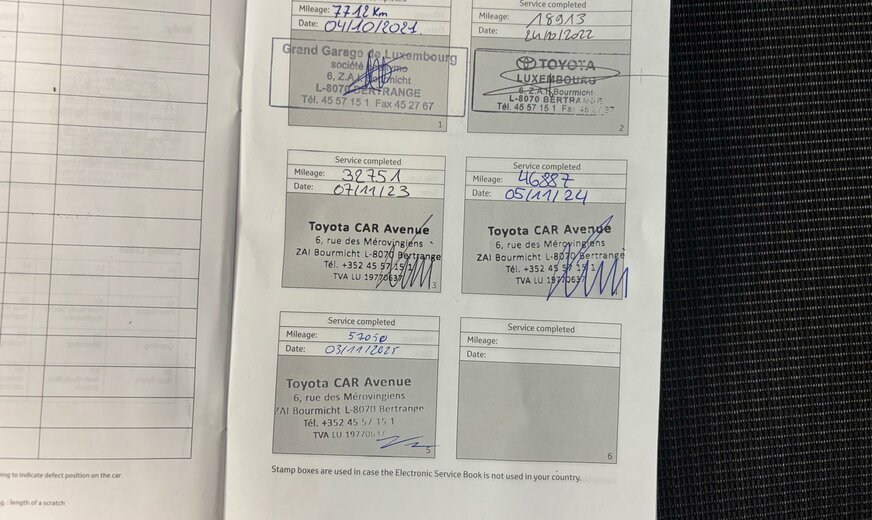 Mileage: 7712 Km
Date: 04/10/2021.
Grand Garage de Luxembourg
société
6, Z.A.I. Bourmicht
L-8070 BERTRANGE
Tél. 45 57 15 1 Fax 45 27 67
1
Service completed
Mileage: 18913
Date: 24/10/2022
TOYOTA
LUXEMBOURG
6, Z.A.I. Bourmicht
L-8070 BERTRANGE
Tél. 45 57 15 1 Fax 45 27 67
2
Service completed
Mileage: 32751
Date: 07/11/23
Toyota CAR Avenue
6, rue des Mérovingiens
ZAI Bourmicht L-8070 Bertrange
Tél. +352 45 57 15 1
TVA LU 19770637
3
Service completed
Mileage: 46887
Date: 05/11/24
Toyota CAR Avenue
6, rue des Mérovingiens
ZAI Bourmicht L-8070 Bertrange
Tél. +352 45 57 15 1
TVA LU 19770637
Service completed
Mileage: 57050
Date: 03/11/2025
Toyota CAR Avenue
6, rue des Mérovingiens
ZAI Bourmicht L-8070 Bertrange
Tél. +352 45 57 15 1
TVA LU 19770637
5
Service completed
Mileage:
Date:
6
Stamp boxes are used in case the Electronic Service Book is not used in your country.
to indicate defect position on the car
: length of a scratch